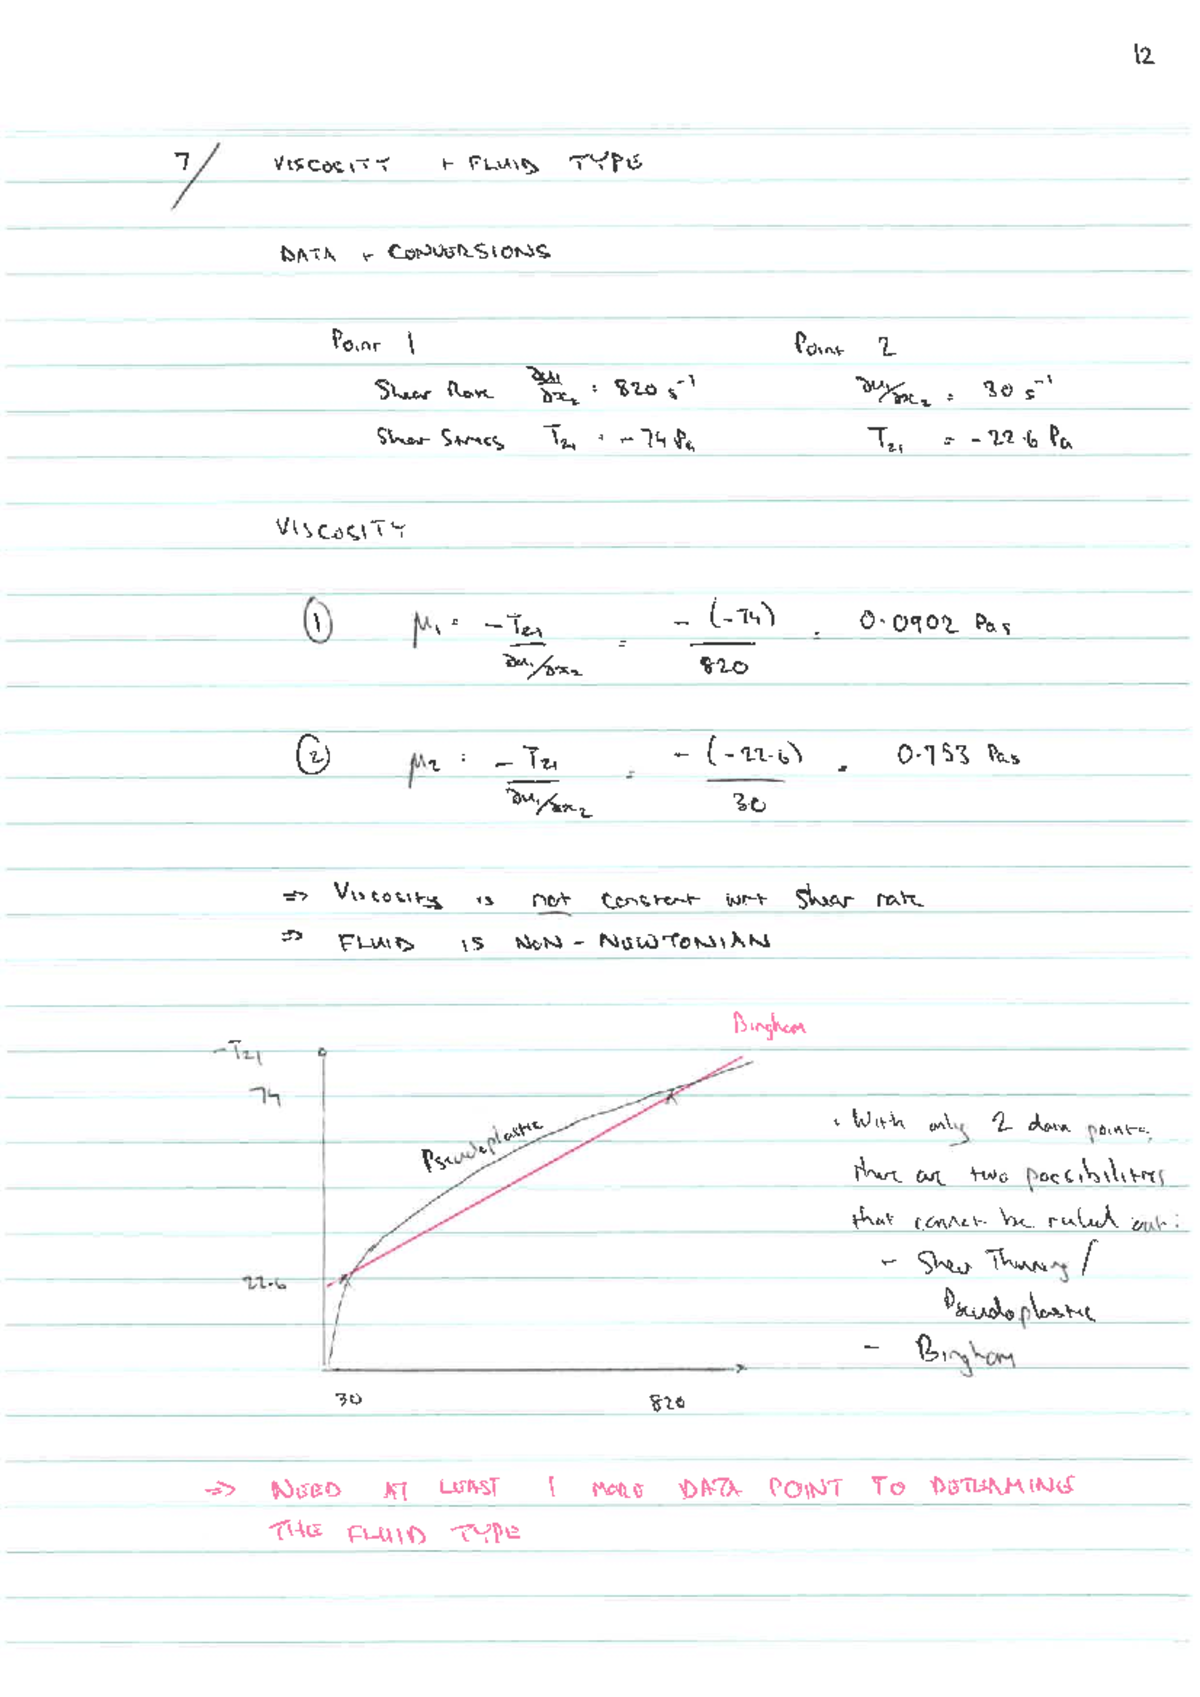 12
7/ VISCOSITY + FLUID TYPE
DATA + CONVERSIONS
Point 1 Point 2
Shear Rate ∂u₁/∂x₂ = 820 s⁻¹ ∂u₁/∂x₂ = 30 s⁻¹
Shear Stress T₂₁ = -74 Pa T₂₁ = -22.6 Pa
VISCOSITY
① μ₁ = -T₂₁ / ∂u₁/∂x₂ = -(-74) / 820 = 0.0902 Pas
② μ₂ = -T₂₁ / ∂u₁/∂x₂ = -(-22.6) / 30 = 0.753 Pas
=> Viscosity is not constant wrt shear rate
=> FLUID IS NON-NEWTONIAN
Bingham
-T₂₁
74
Pseudoplastic
22.6
30 820
. With only 2 data points,
there are two possibilities
that cannot be ruled out:
- Shear Thinning /
Pseudoplastic
- Bingham
=> NEED AT LEAST 1 MORE DATA POINT TO DETERMINE
THE FLUID TYPE